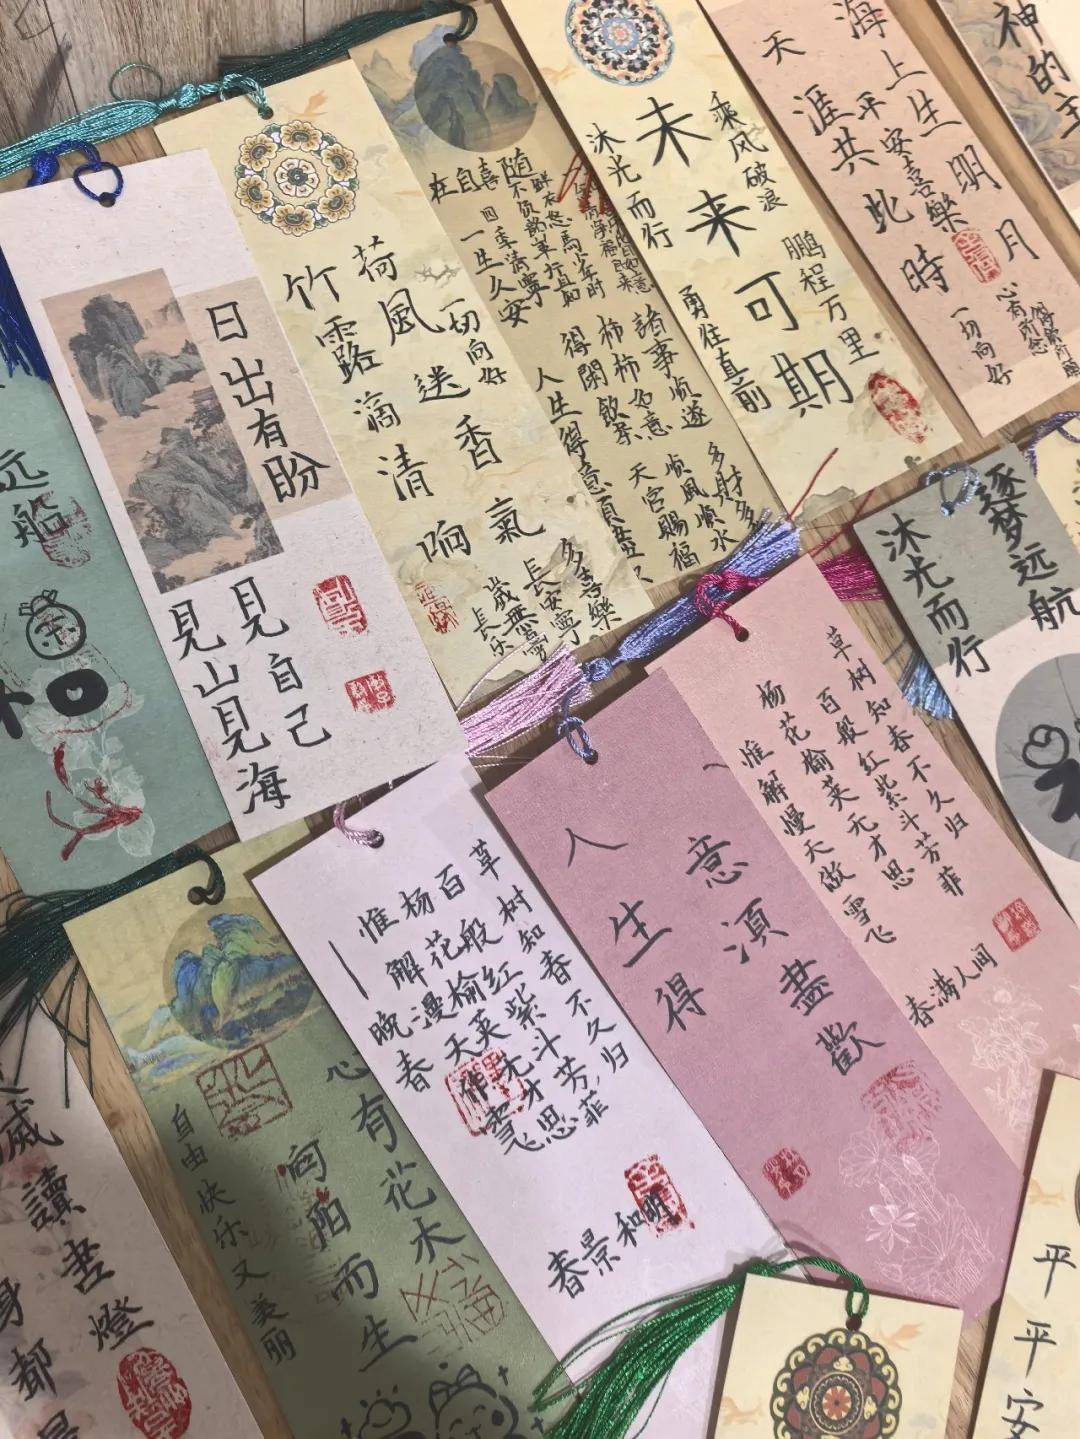 远
船
和
日出有盼
見自己
見山見海
荷風送香氣
竹露滴清响
一切向好
多喜樂
長安寧
歲無憂
長乐
随
喜
自
在
四季清寧
一生久安
諸事順遂
柿柿如意
得閑飲茶
人生得意
多財多
順風順水
天官賜福
乘风破浪
鹏程万里
未来可期
沐光而行
勇往直前
海上生明月
天涯共此時
平安喜樂
心有所念
一切向好
神的
逐梦远航
沐光而行
草树知春不久归
百般红紫斗芳菲
杨花榆荚无才思
惟解漫天作雪飞
晚春
春景和明
人生得
意須盡歡
草树知春不久归
百般红紫斗芳菲
杨花榆荚无才思
惟解慢天做雪飞
春满人间
心有花木
向阳而生
自由快乐又美丽
讀書燈
身都是
平平安